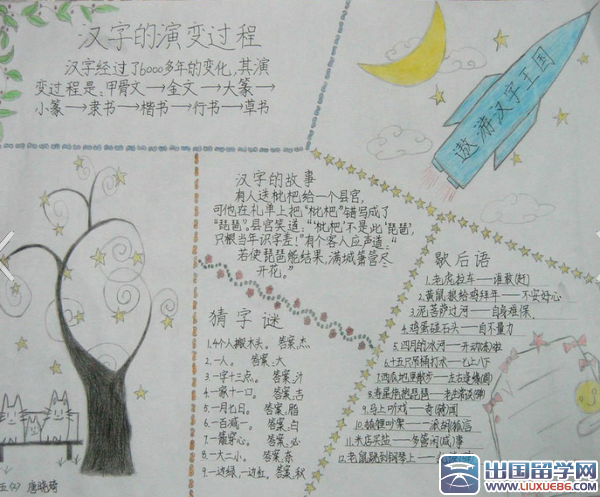 汉字的演变过程
汉字经过了6000多年的变化,其演
变过程是:甲骨文→金文→大篆→
小篆→隶书→楷书→行书→草书
遨游汉字王国
汉字的故事
有人送枇杷给一个县官,
可他在礼单上把“枇杷”错写成了
“琵琶”。县官笑道:“枇杷不是此琵琶,
只恨当年识字差!”有个客人应声道:“
若使琵琶能结果,满城箫管尽
开花。”
猜字谜
1.4个人搬木头。 答案:杰
2.一人。 答案:大
3.一字十三点。 答案:汁
4.一家十一口。 答案:吉
5.一月七日。 答案:脂
6.一百减一。 答案:白
7.一箭穿心。 答案:必
8.一大二小。 答案:奈
9.一边绿,一边红 答案:秋
歇后语
1.老虎拉车——谁敢(赶)
2.黄鼠狼给鸡拜年——不安好心
3.泥菩萨过河——自身难保、
4.鸡蛋碰石头——自不量力
5.四月的冰河——开动
6.十五只吊桶打水——七上八下
7.西瓜地里散步——左右逢
8.抱琵琶——老生常谈(弹)
9.马上听戏——
10.狐狸吵架——
11.米店买盐——多管闲(咸)事
12.老鼠跳到钢琴上——
五(7) 唐晓琦
出国留学网
www.liuxue86.com